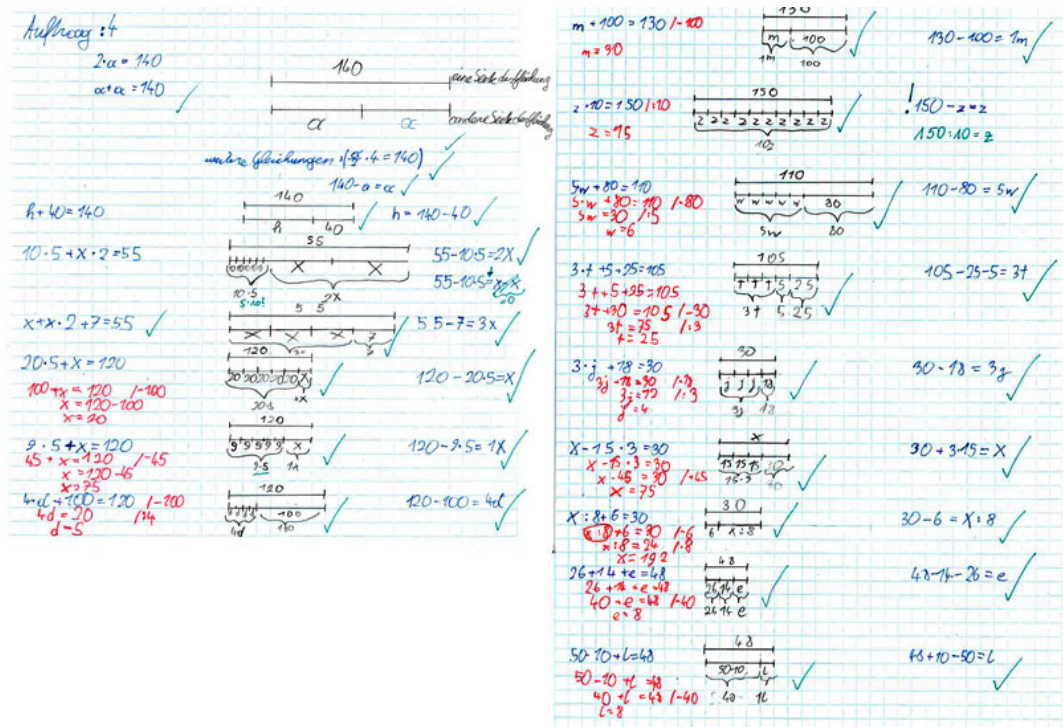 Auftrag: 4
2·a = 140
a+a = 140
140
eine Seite der Gleichung
a a
andere Seite der Gleichung
weitere Gleichungen:
140-a=a
h+40=140
140
h 40
h = 140-40
10·5+x·2=55
55
10 10 10 10 10 x x
10·5 2x
5·10!
55-10·5=2x
55-10·5=x+x
x+x·2+7=55
5 5
x x x 7
3x 7
55-7=3x
20·5+x=120
120
20 20 20 20 20 x
20·5 1x
120-20·5=x
100+x=120 /-100
x=120-100
x=20
9·5+x=120
120
9 9 9 9 9 x
9·5 1x
120-9·5=1x
45+x=120 /-45
x=120-45
x=75
4·d+100=120 /-100
4d=20 /:4
d=5
120
d d d d 100
4d 100
120-100=4d
m+100=130 /-100
m=90
130
m 100
1m 100
130-100=1m
z·10=150 /:10
z=15
150
z z z z z z z z z z
10z
! 150-z=z
150:10=z
5w+80=110
5·w+80=110 /-80
5w=30 /:5
w=6
110
w w w w w 80
5w 80
110-80=5w
3·t+5+25=105
3t+5+25=105
3t+30=105 /-30
3t=75 /:3
t=25
105
t t t 5 25
3t 5 25
105-25-5=3t
3·j+18=30
3j+18=30 /-18
3j=12 /:3
j=4
30
j j j 18
3j 18
30-18=3j
x-15·3=30
x-15·3=30
x-45=30 /+45
x=75
x
15 15 15 30
15·3 30
30+3·15=x
x:8+6=30
x:8+6=30 /-6
x:8=24 /·8
x=192
30
6 x:8
30-6=x:8
26+14+e=48
26+14+e=48
40+e=48 /-40
e=8
48
26 14 e
26 14 e
48-14-26=e
50-10+l=48
50-10+l=48
40+l=48 /-40
l=8
48
50-10 l
40 1l
48+10-50=l